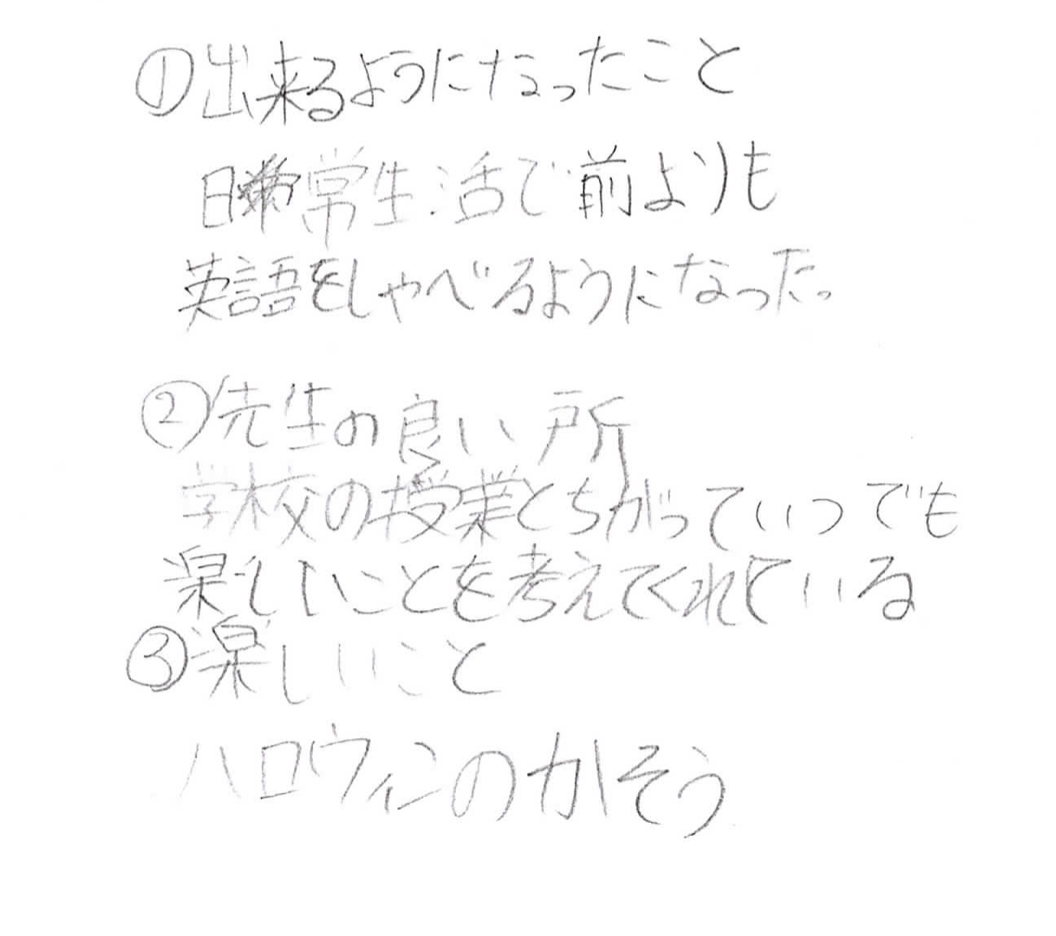 ①出来るようになったこと
日常生活で前よりも
英語をしゃべるようになった。
②先生の良い所
学校の授業とちがっていつでも
楽しいことを考えてくれている
③楽しいこと
ハロウィンのかそう